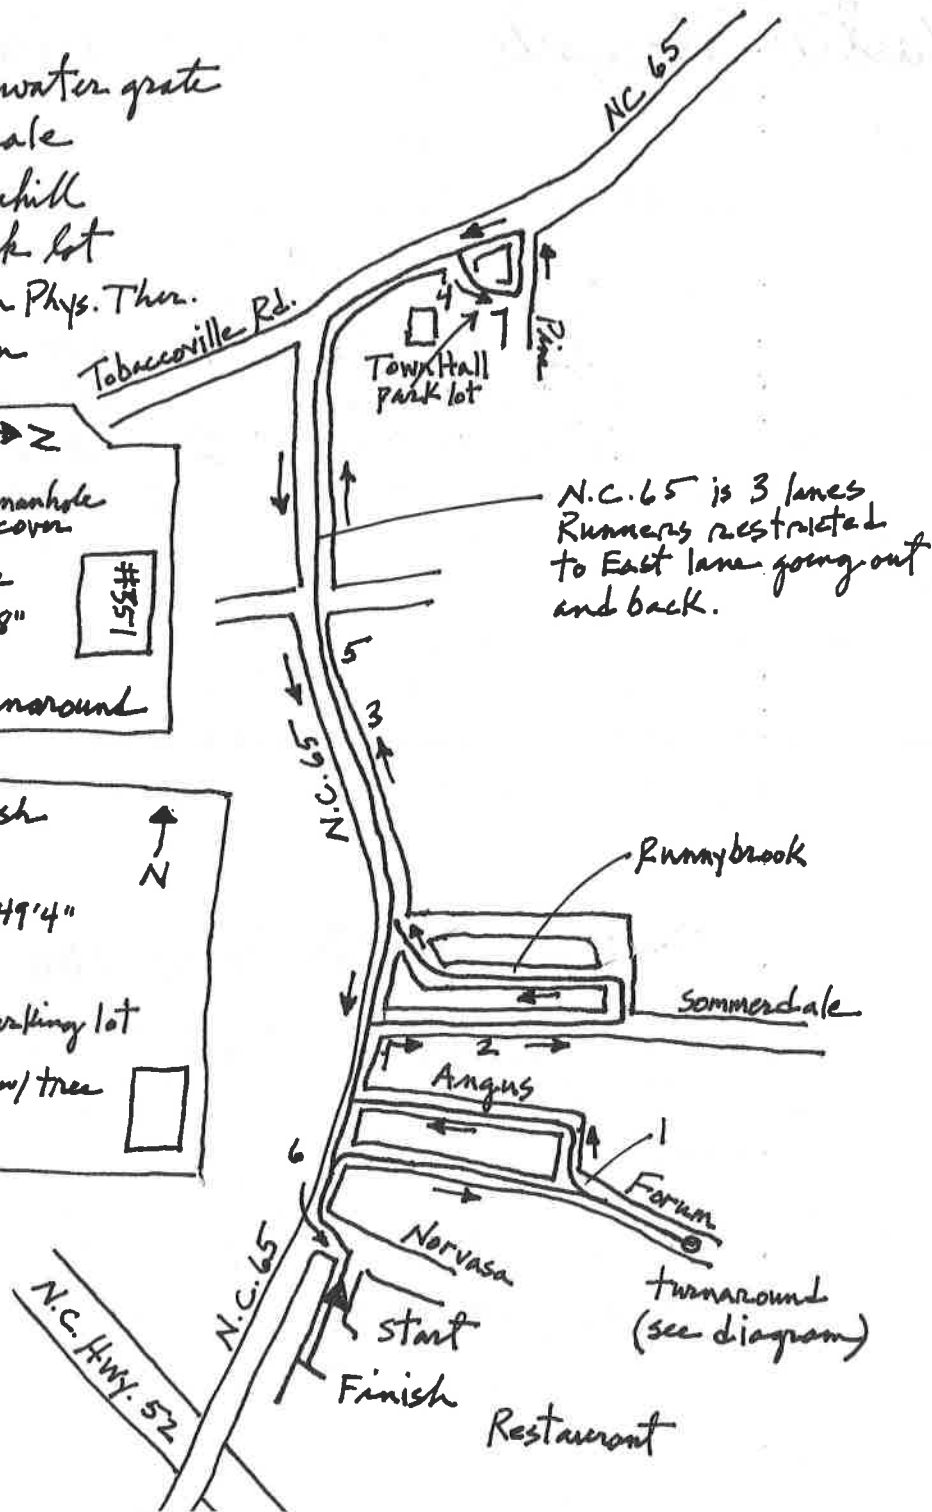 water grate
hill
lot
Phys. Ther.
NC 65
Tobaccoville Rd.
4
7
Pine
Town Hall
park lot
N
manhole
cover
#351
8"
N.C. 65 is 3 lanes
Runners restricted
to East lane going out
and back.
5
3
N.C. 65
N
49'4"
lot
w/ tree
Runnybrook
Sommerdale
1
2
Angus
1
Forum
6
Norvasa
turnaround
(see diagram)
N.C. 65
N.C. Hwy. 52
start
Finish
Restaurant